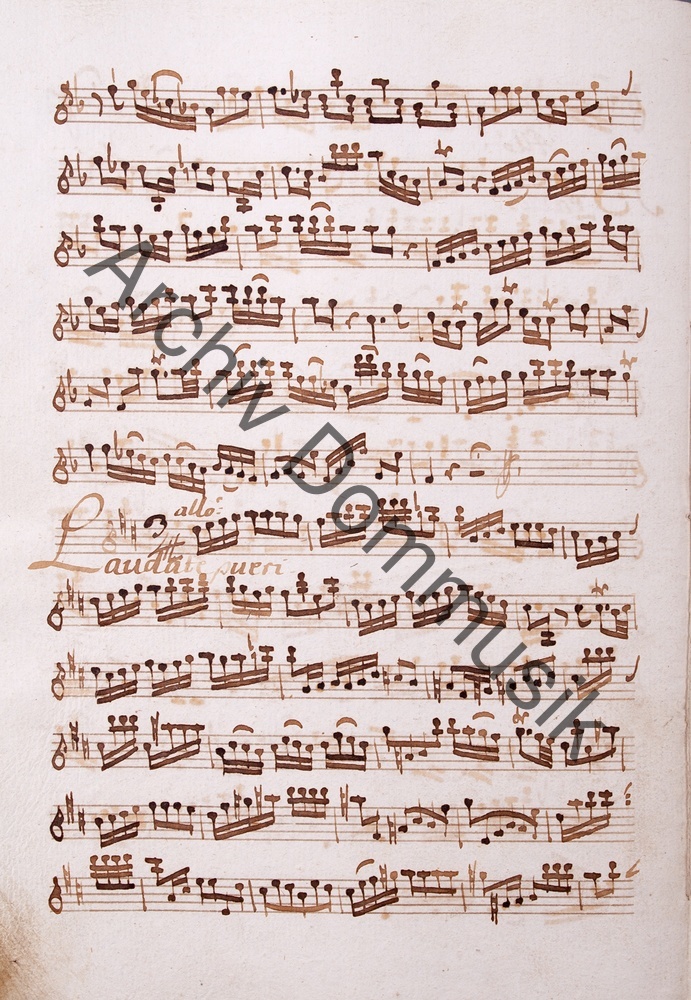 allo:
3
Laudate pueri
Archiv Dommusik